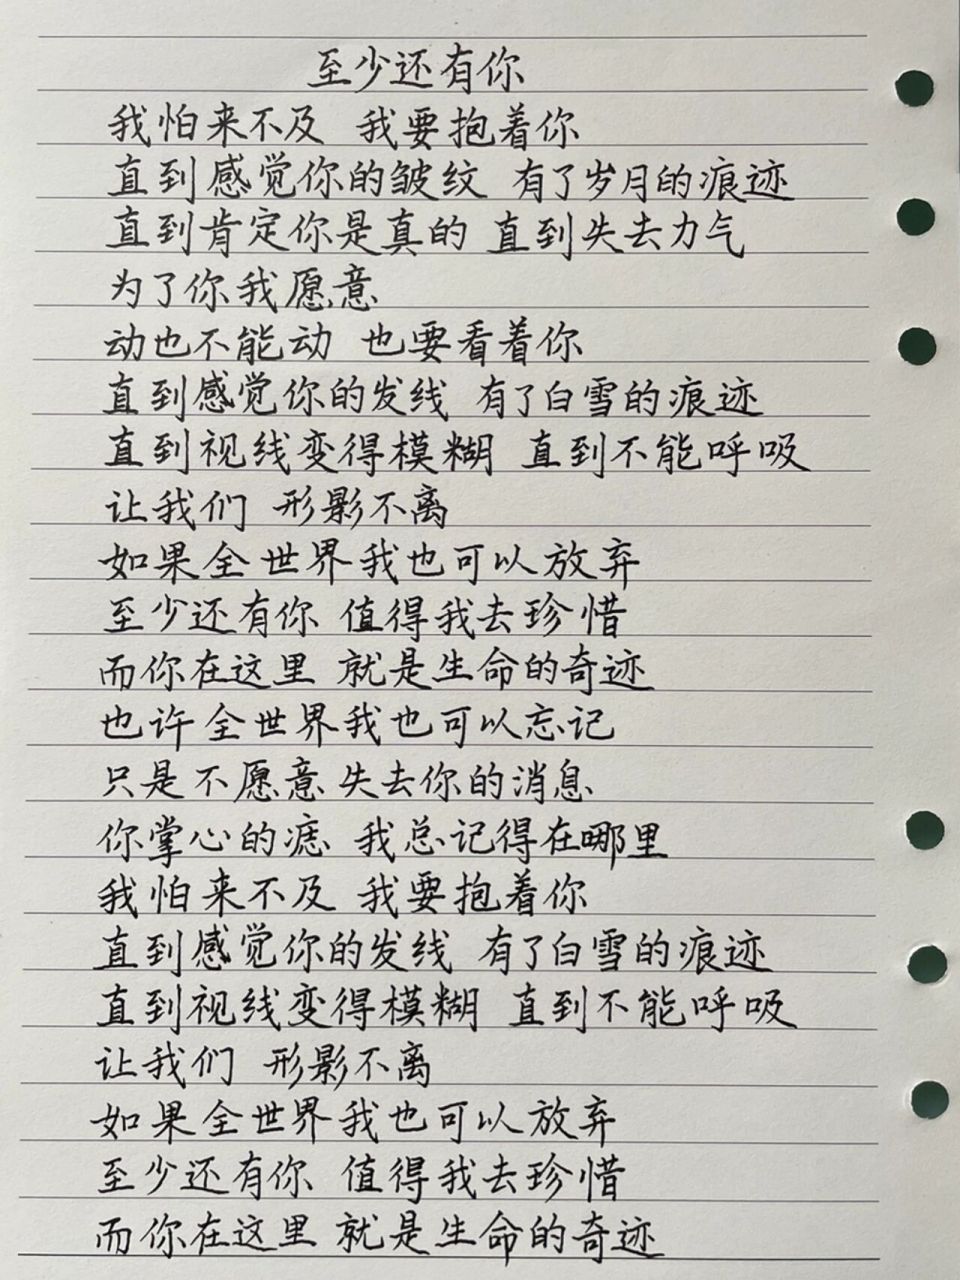 至少还有你
我怕来不及 我要抱着你
直到感觉你的皱纹 有了岁月的痕迹
直到肯定你是真的 直到失去力气
为了你我愿意
动也不能动 也要看着你
直到感觉你的发线 有了白雪的痕迹
直到视线变得模糊 直到不能呼吸
让我们 形影不离
如果全世界我也可以放弃
至少还有你 值得我去珍惜
而你在这里 就是生命的奇迹
也许全世界我也可以忘记
只是不愿意 失去你的消息
你掌心的痣 我总记得在哪里
我怕来不及 我要抱着你
直到感觉你的发线 有了白雪的痕迹
直到视线变得模糊 直到不能呼吸
让我们 形影不离
如果全世界我也可以放弃
至少还有你 值得我去珍惜
而你在这里 就是生命的奇迹